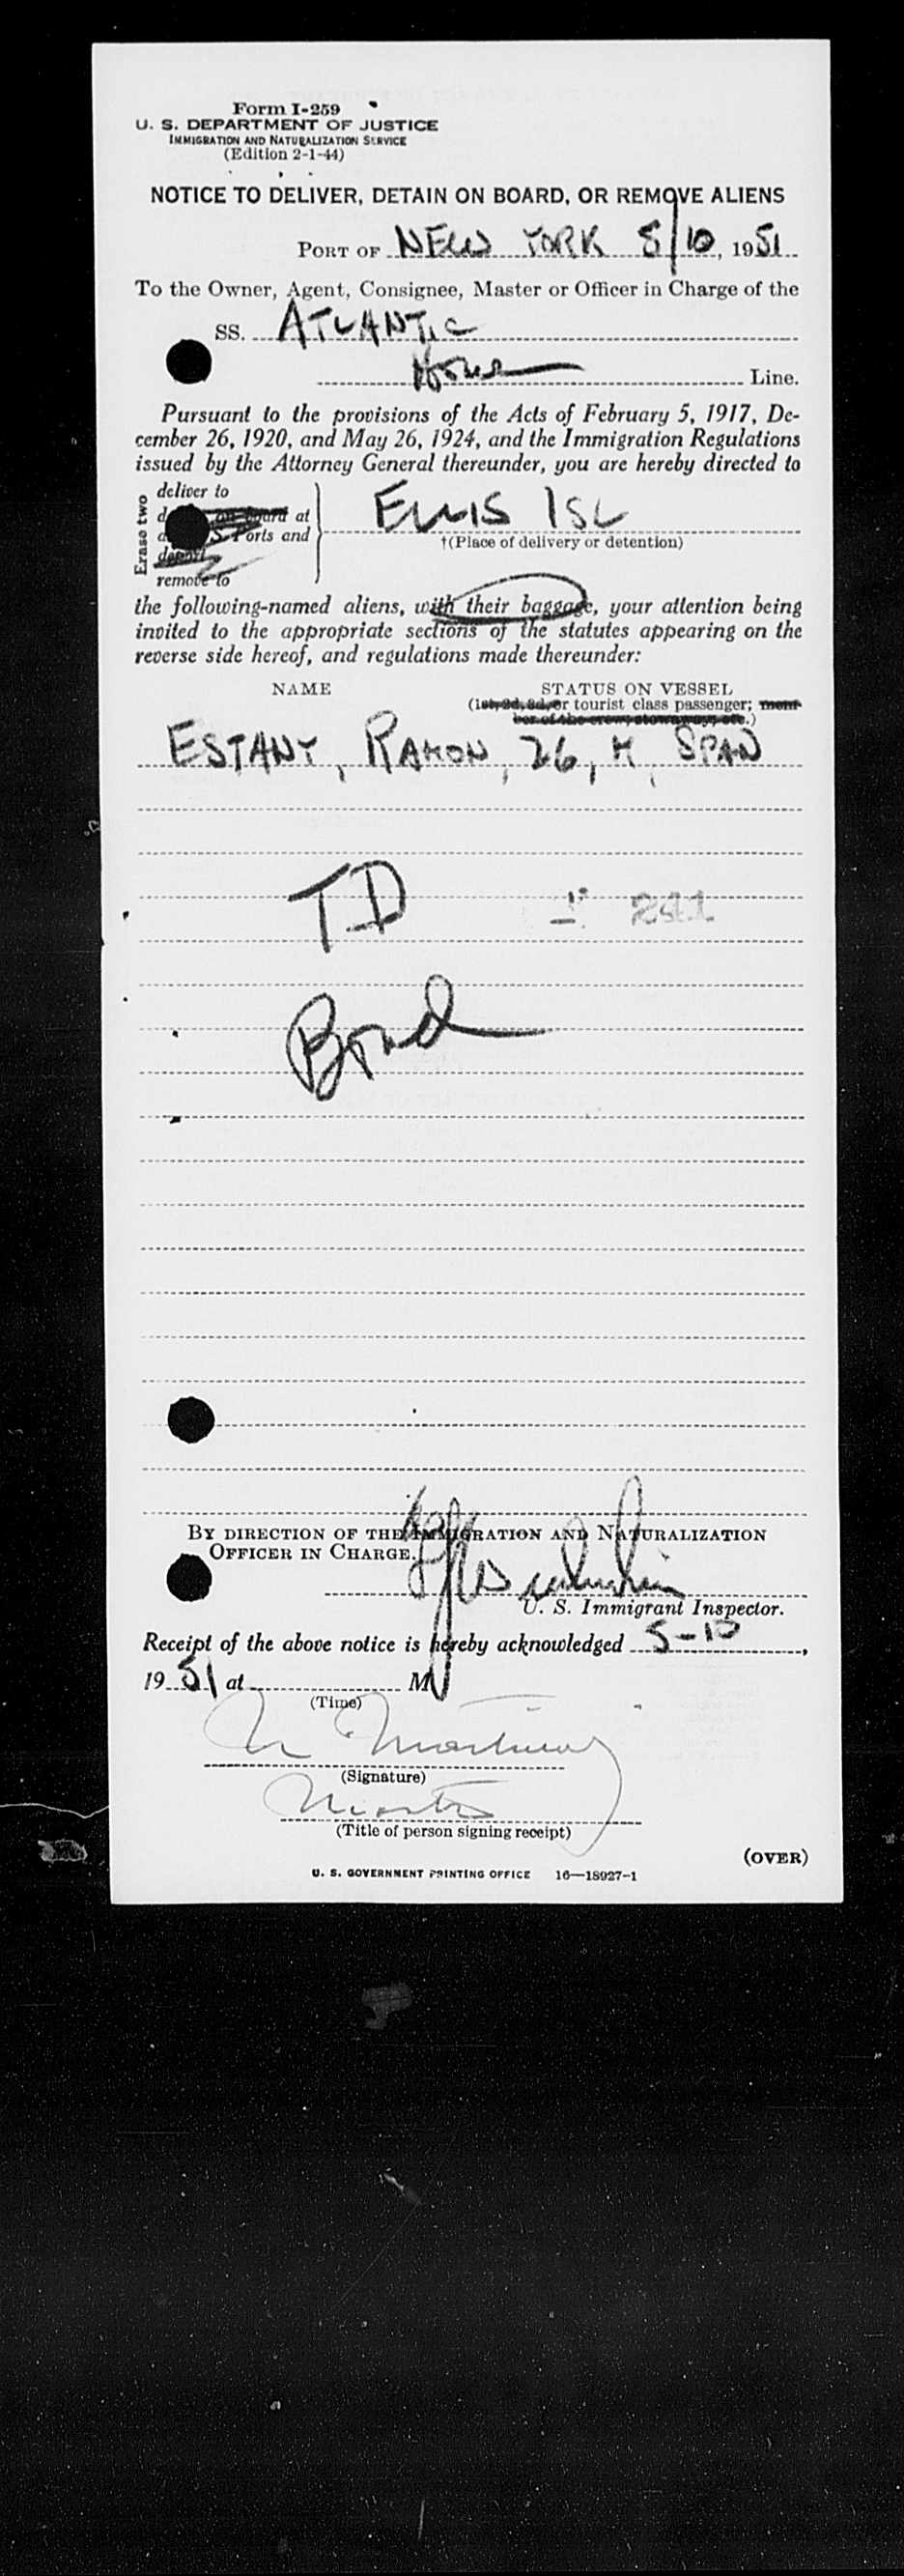 Form I-259
U. S. DEPARTMENT OF JUSTICE
IMMIGRATION AND NATURALIZATION SERVICE
(Edition 2-1-44)
NOTICE TO DELIVER, DETAIN ON BOARD, OR REMOVE ALIENS
PORT OF NEW YORK 5/10, 1951
To the Owner, Agent, Consignee, Master or Officer in Charge of the
SS. ATLANTIC
Home Line.
Pursuant to the provisions of the Acts of February 5, 1917, De-
cember 26, 1920, and May 26, 1924, and the Immigration Regulations
issued by the Attorney General thereunder, you are hereby directed to
Erase two
deliver to
on board at
Ports and
deport
remove to
ELLIS ISL
†(Place of delivery or detention)
the following-named aliens, with their baggage, your attention being
invited to the appropriate sections of the statutes appearing on the
reverse side hereof, and regulations made thereunder:
NAME STATUS ON VESSEL
(1st, 2d, 3d, or tourist class passenger; mem-
ber of the crew, stowaway, etc.)
ESTANY, RAMON, 26, M, SPAN
TD
Bond
BY DIRECTION OF THE IMMIGRATION AND NATURALIZATION
OFFICER IN CHARGE.
U. S. Immigrant Inspector.
Receipt of the above notice is hereby acknowledged 5-10,
1951 at M
(Time)
(Signature)
(Title of person signing receipt)
(OVER)
U. S. GOVERNMENT PRINTING OFFICE 16—18927-1